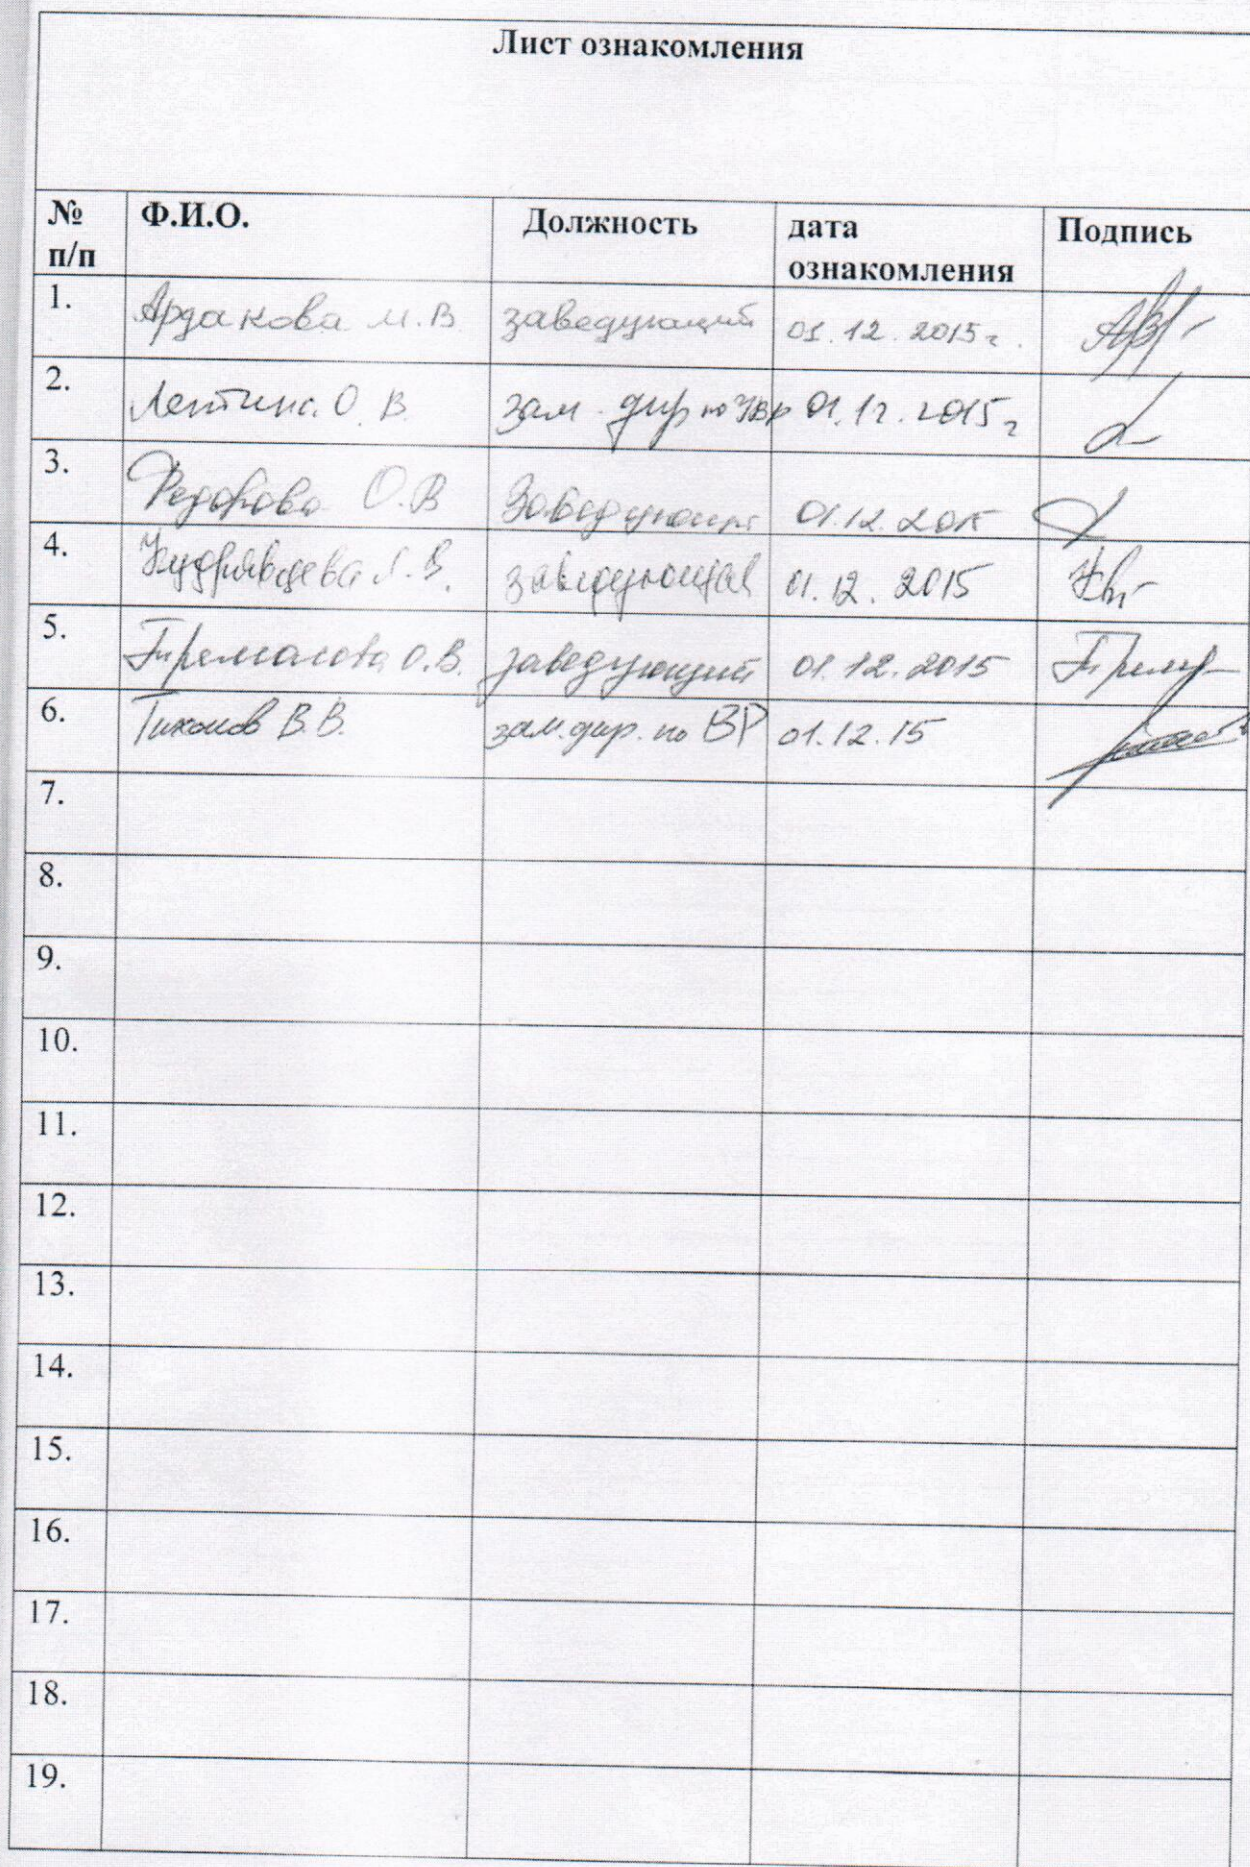 Лист ознакомления
№ п/п Ф.И.О. Должность дата ознакомления Подпись
1. Ардакова М.В. заведующий 01.12.2015г.
2. О.В. зам. дир по УВР 01.12.2015г
3. Федорова О.В Заведующий 01.12.2015
4. Кудрявцева Л.В. заведующая 01.12.2015
5. О.В. заведующий 01.12.2015
6. Тихонов В.В. зам.дир. по ВР 01.12.15
7.
8.
9.
10.
11.
12.
13.
14.
15.
16.
17.
18.
19.